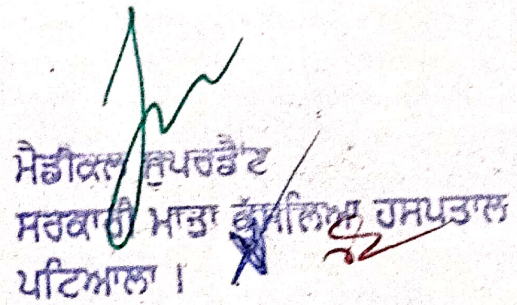 ਮੈਡੀਕਲ ਸੁਪਰਡੈਂਟ
ਸਰਕਾਰੀ ਮਾਤਾ ਕੁੱਸਲਿਆ ਹਸਪਤਾਲ
ਪਟਿਆਲਾ ।